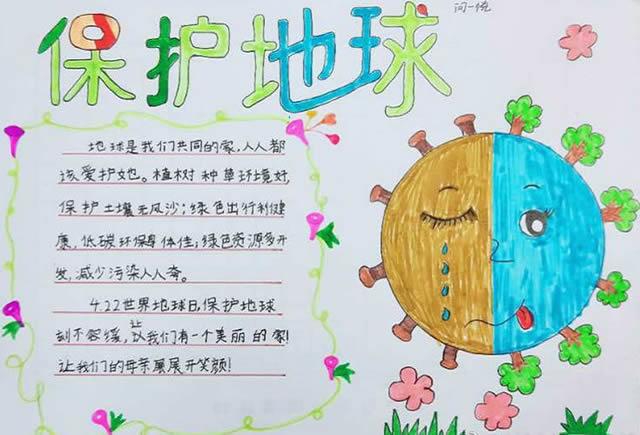 保护地球
闫一悦
地球是我们共同的家,人人都
该爱护她。植树种草环境好,
保护土壤无风沙;绿色出行利健
康,低碳环保身体佳;绿色资源多开
发,减少污染人人夸。
4.22世界地球日,保护地球
刻不容缓,让我们有一个美丽的家!
让我们的母亲展展开笑颜!